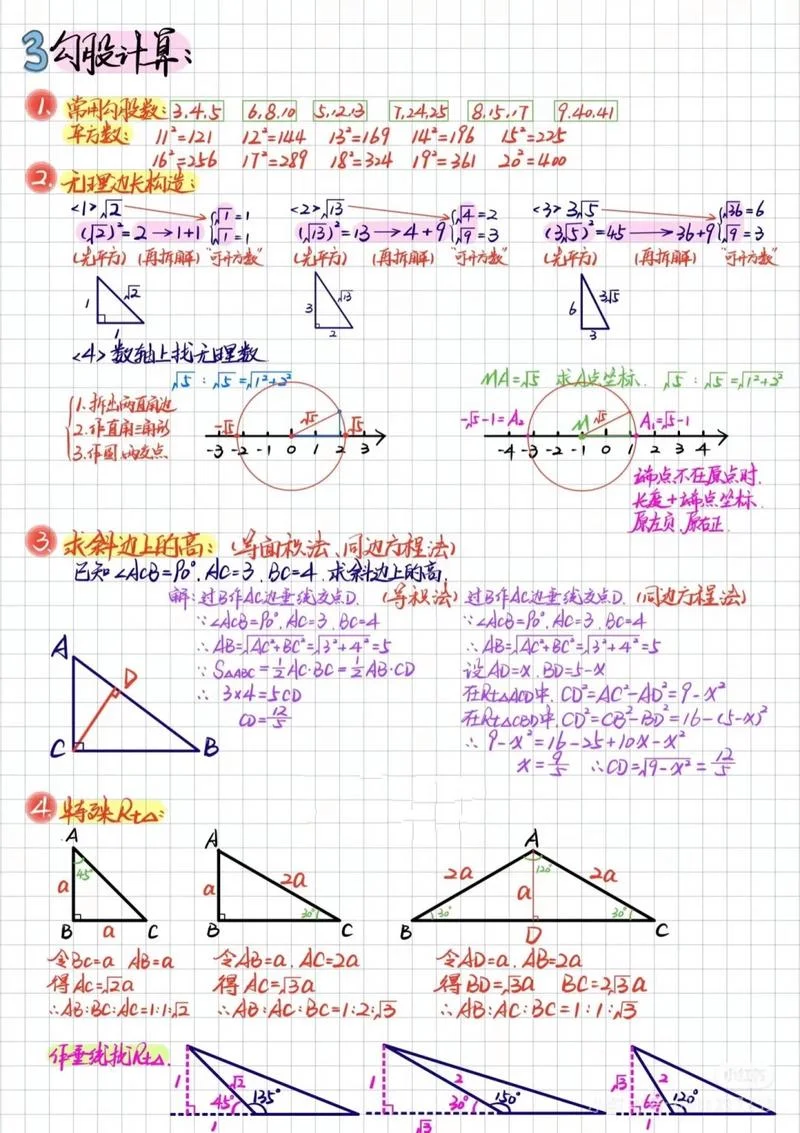 3 勾股计算:
1. 常用勾股数: 3.4.5 6.8.10 5.12.13 7.24.25 8.15.17 9.40.41
平方数: 11²=121 12²=144 13²=169 14²=196 15²=225
16²=256 17²=289 18²=324 19²=361 20²=400
2. 无理边长构造:
<1>√2
(√2)²=2→1+1 {√1=1 √1=1
(先平方) (再拆解) "可开方数"
1 √2 1
<2>√13
(√13)²=13→4+9 {√4=2 √9=3
(先平方) (再拆解) "可开方数"
3 √13 2
<3>3√5
(3√5)²=45→36+9 {√36=6 √9=3
(先平方) (再拆解) "可开方数"
6 3√5 3
<4>数轴上找无理数
√5:√5=√1²+2²
{1.拆出两直角边
2.作直角三角形
3.作圆.两交点
-√5 √5 √5
-3 -2 -1 0 1 2 3
MA=√5 求A点坐标. √5:√5=√1²+2²
-√5-1=A₂ M √5 A₁=√5-1
-4 -3 -2 -1 0 1 2 3 4
端点不在原点时.
长度+端点坐标.
原左负.原右正.
3. 求斜边上的高: (等面积法、同边方程法)
已知∠ACB=90°.AC=3.BC=4.求斜边上的高.
解:过B作AC边垂线交点D. (等积法)
∵∠ACB=90°.AC=3.BC=4
∴AB=√AC²+BC²=√3²+4²=5
∵S△ABC=½AC·BC=½AB·CD
∴3×4=5CD
CD=12/5
过B作AC边垂线交点D. (同边方程法)
∵∠ACB=90°.AC=3.BC=4
∴AB=√AC²+BC²=√3²+4²=5
设AD=x.BD=5-x
在Rt△ACD中.CD²=AC²-AD²=9-x²
在Rt△CBD中.CD²=CB²-BD²=16-(5-x)²
∴9-x²=16-25+10x-x²
x=9/5 ∴CD=√9-x²=12/5
A D C B
4. 特殊Rt△:
A 45° a B a C
令BC=a AB=a
得AC=√2a
∴AB:BC:AC=1:1:√2
A a 2a 30° B C
令AB=a.AC=2a
得AC=√3a
∴AB:AC:BC=1:2:√3
A 120° 2a a 2a 30° 30° B D C
令AD=a.AB=2a
得BD=√3a BC=2√3a
∴AB:AC:BC=1:1:√3
作垂线找Rt△.
1 √2 45° 135° 1
1 2 30° 150° √3
√3 2 60° 120° 1
小红书